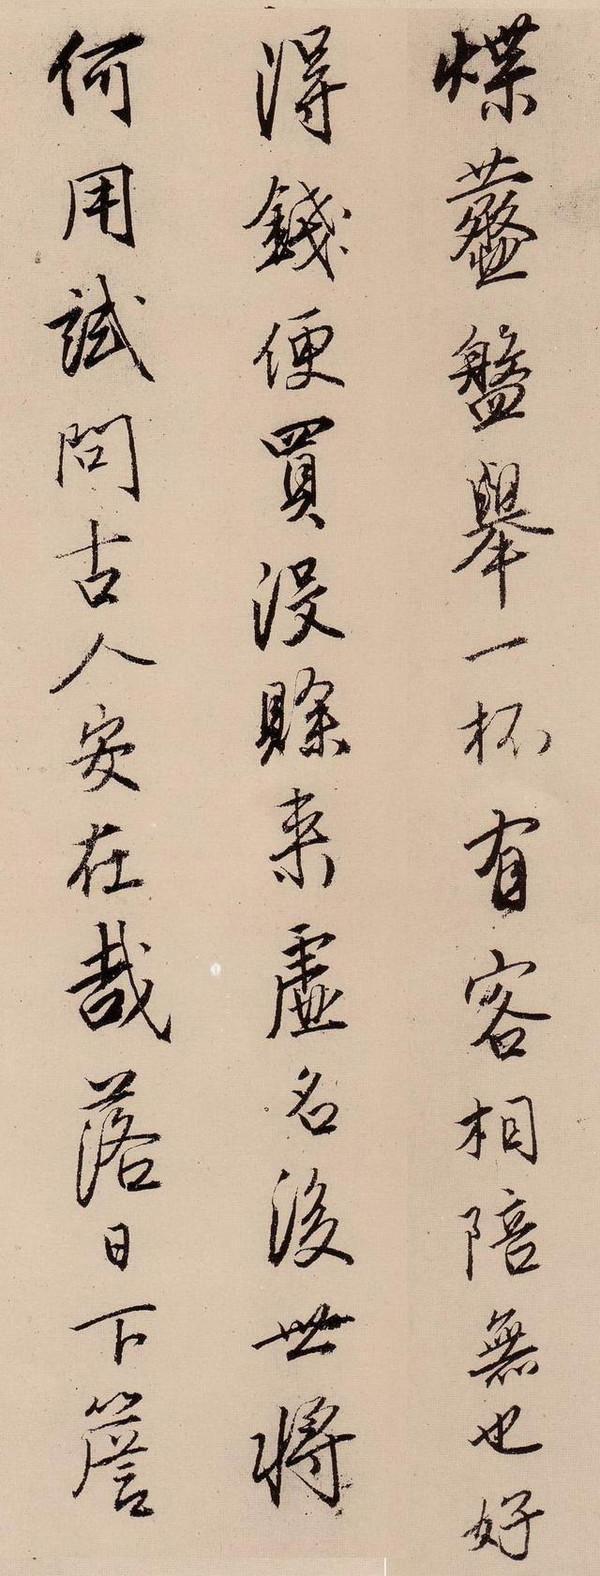 煠虀盤舉一杯有客相陪無也好
得錢便買没賒来虛名後世將
何用試問古人安在哉落日下簷